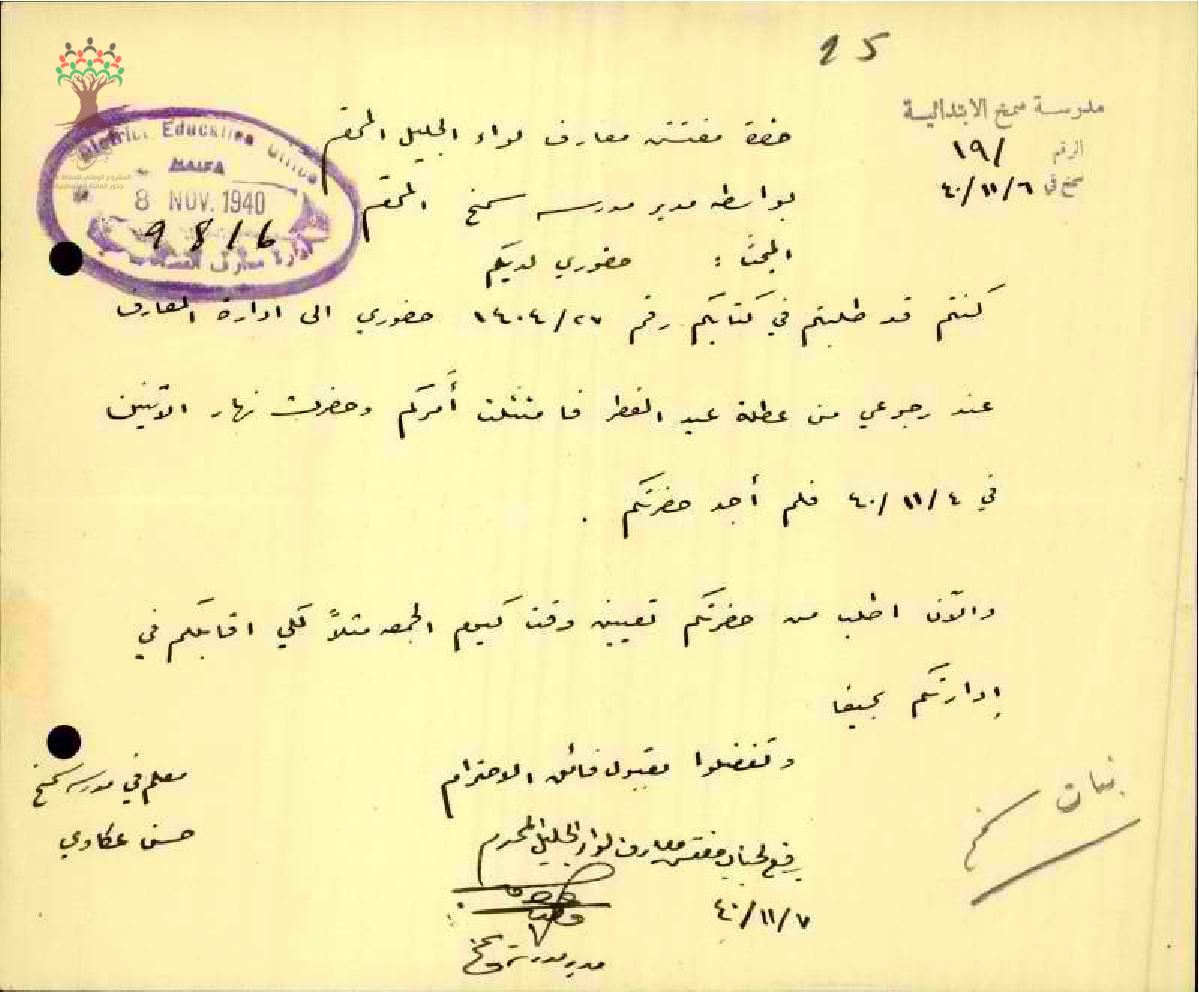 25
مدرسة سمخ الابتدائية
الرقم /١٩
سمخ في ٤٠/١١/٦
District Education Office
HAIFA
8 NOV. 1940
9816
ادارة معارف
حضرة مفتش معارف لواء الجليل المحترم
بواسطة مدير مدرسة سمخ المحترم
البحث : حضوري لديكم
كنتم قد طلبتم في كتابكم رقم ١٤٠٤/٢٧ حضوري الى ادارة المعارف
عند رجوعي من عطلة عيد الفطر فامتثلت أمركم وحضرت نهار الاثنين
في ٤٠/١١/٤ فلم أجد حضرتكم .
والآن اطلب من حضرتكم تعيين وقت كيوم الجمعه مثلاً لكي اقابلكم في
إدارتكم بحيفا
وتفضلوا بقبول فائق الاحترام
معلم في مدرسة سمخ
حسن عكاوي
يرفع لجناب مفتش معارف لواء الجليل المحترم
٤٠/١١/٧
مدير مدرسة سمخ
بنات سمخ